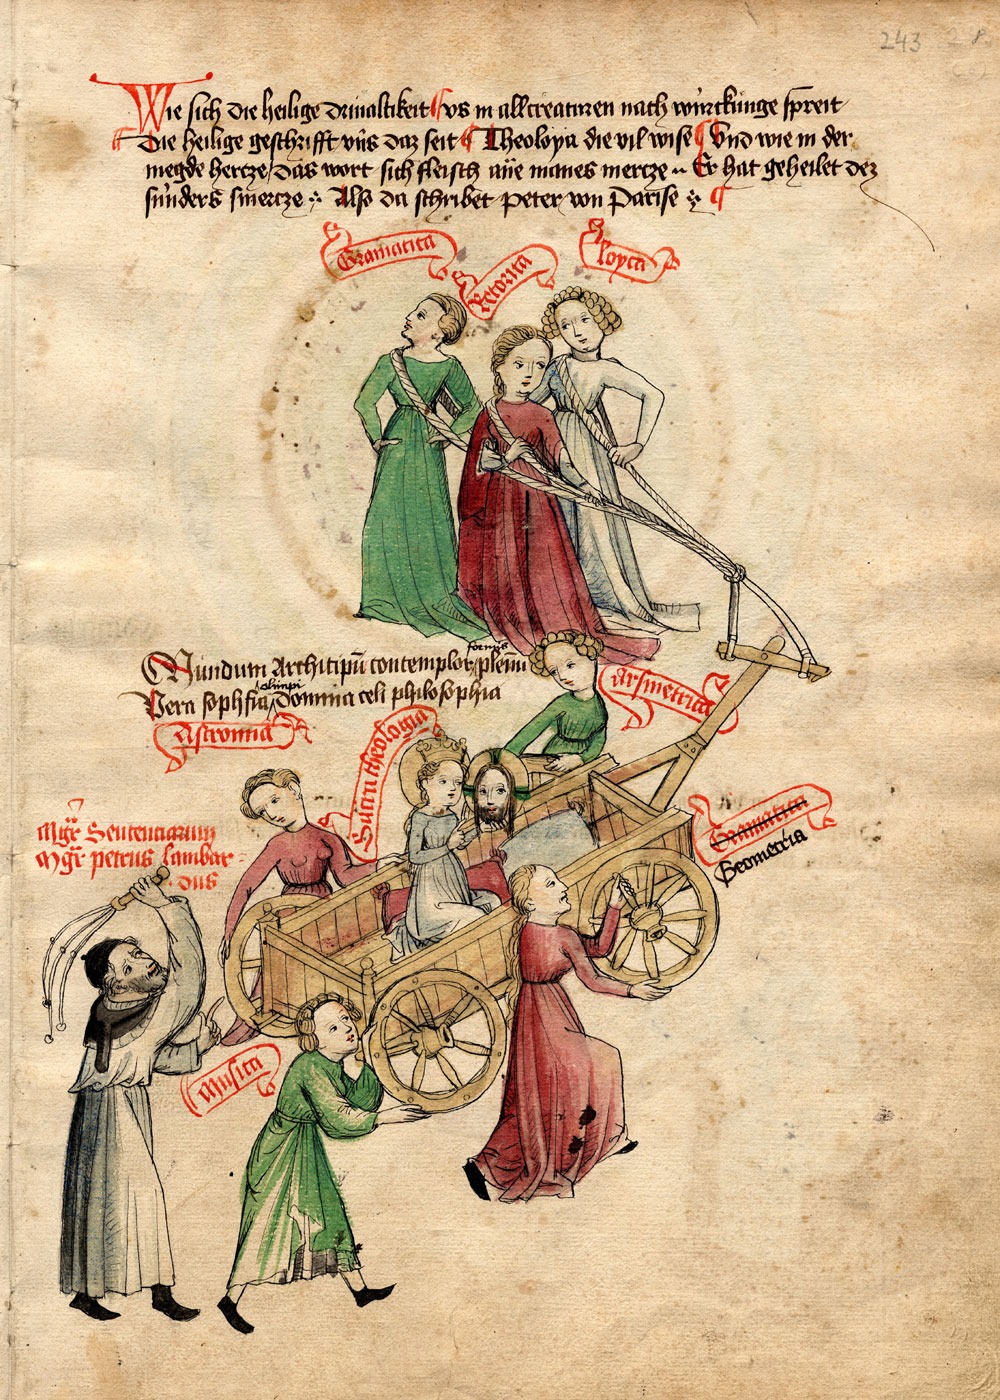 243
Wie sich die heilige drivaltikeit vs in all creaturen nach würckunge spreit
Die heilige geschrifft vns daz seit Theoloya die vil wise Vnd wie in der
megde hercze das wort sich fleisch ane manes mercze Er hat geheilet dez
sünders smercze Also da schribet peter von Parise
Gramatica
Retorica
loyca
formis
Mundum Architipum contemplor plenum
olimpi
Vera sophia Domina celi philosophia
Arsmetrica
Astronmia
Sacra theologia
Gramatica
Geometria
Mgr Sententiarum
Mgr petrus lambar
dus
Musica